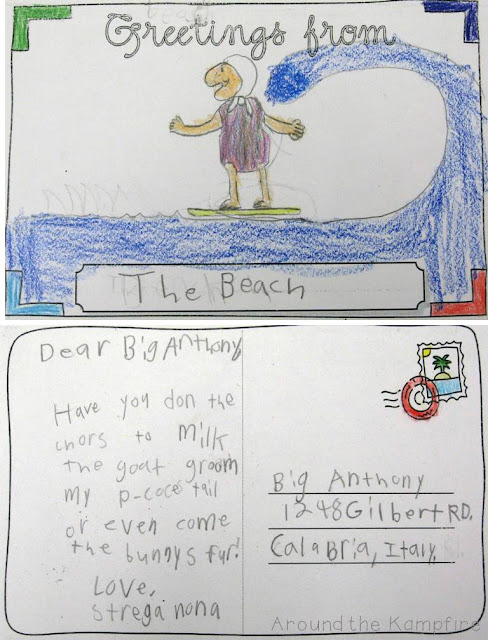 Greetings from
The Beach
Dear Big Anthony
Have you don the
chors to milk
the goat groom
my p-coces tail
or even come
the bunnys fur!
Love,
Strega nona
Big Anthony
1248 Gilbert RD.
CalaBria, Italy.
Around the Kampfire